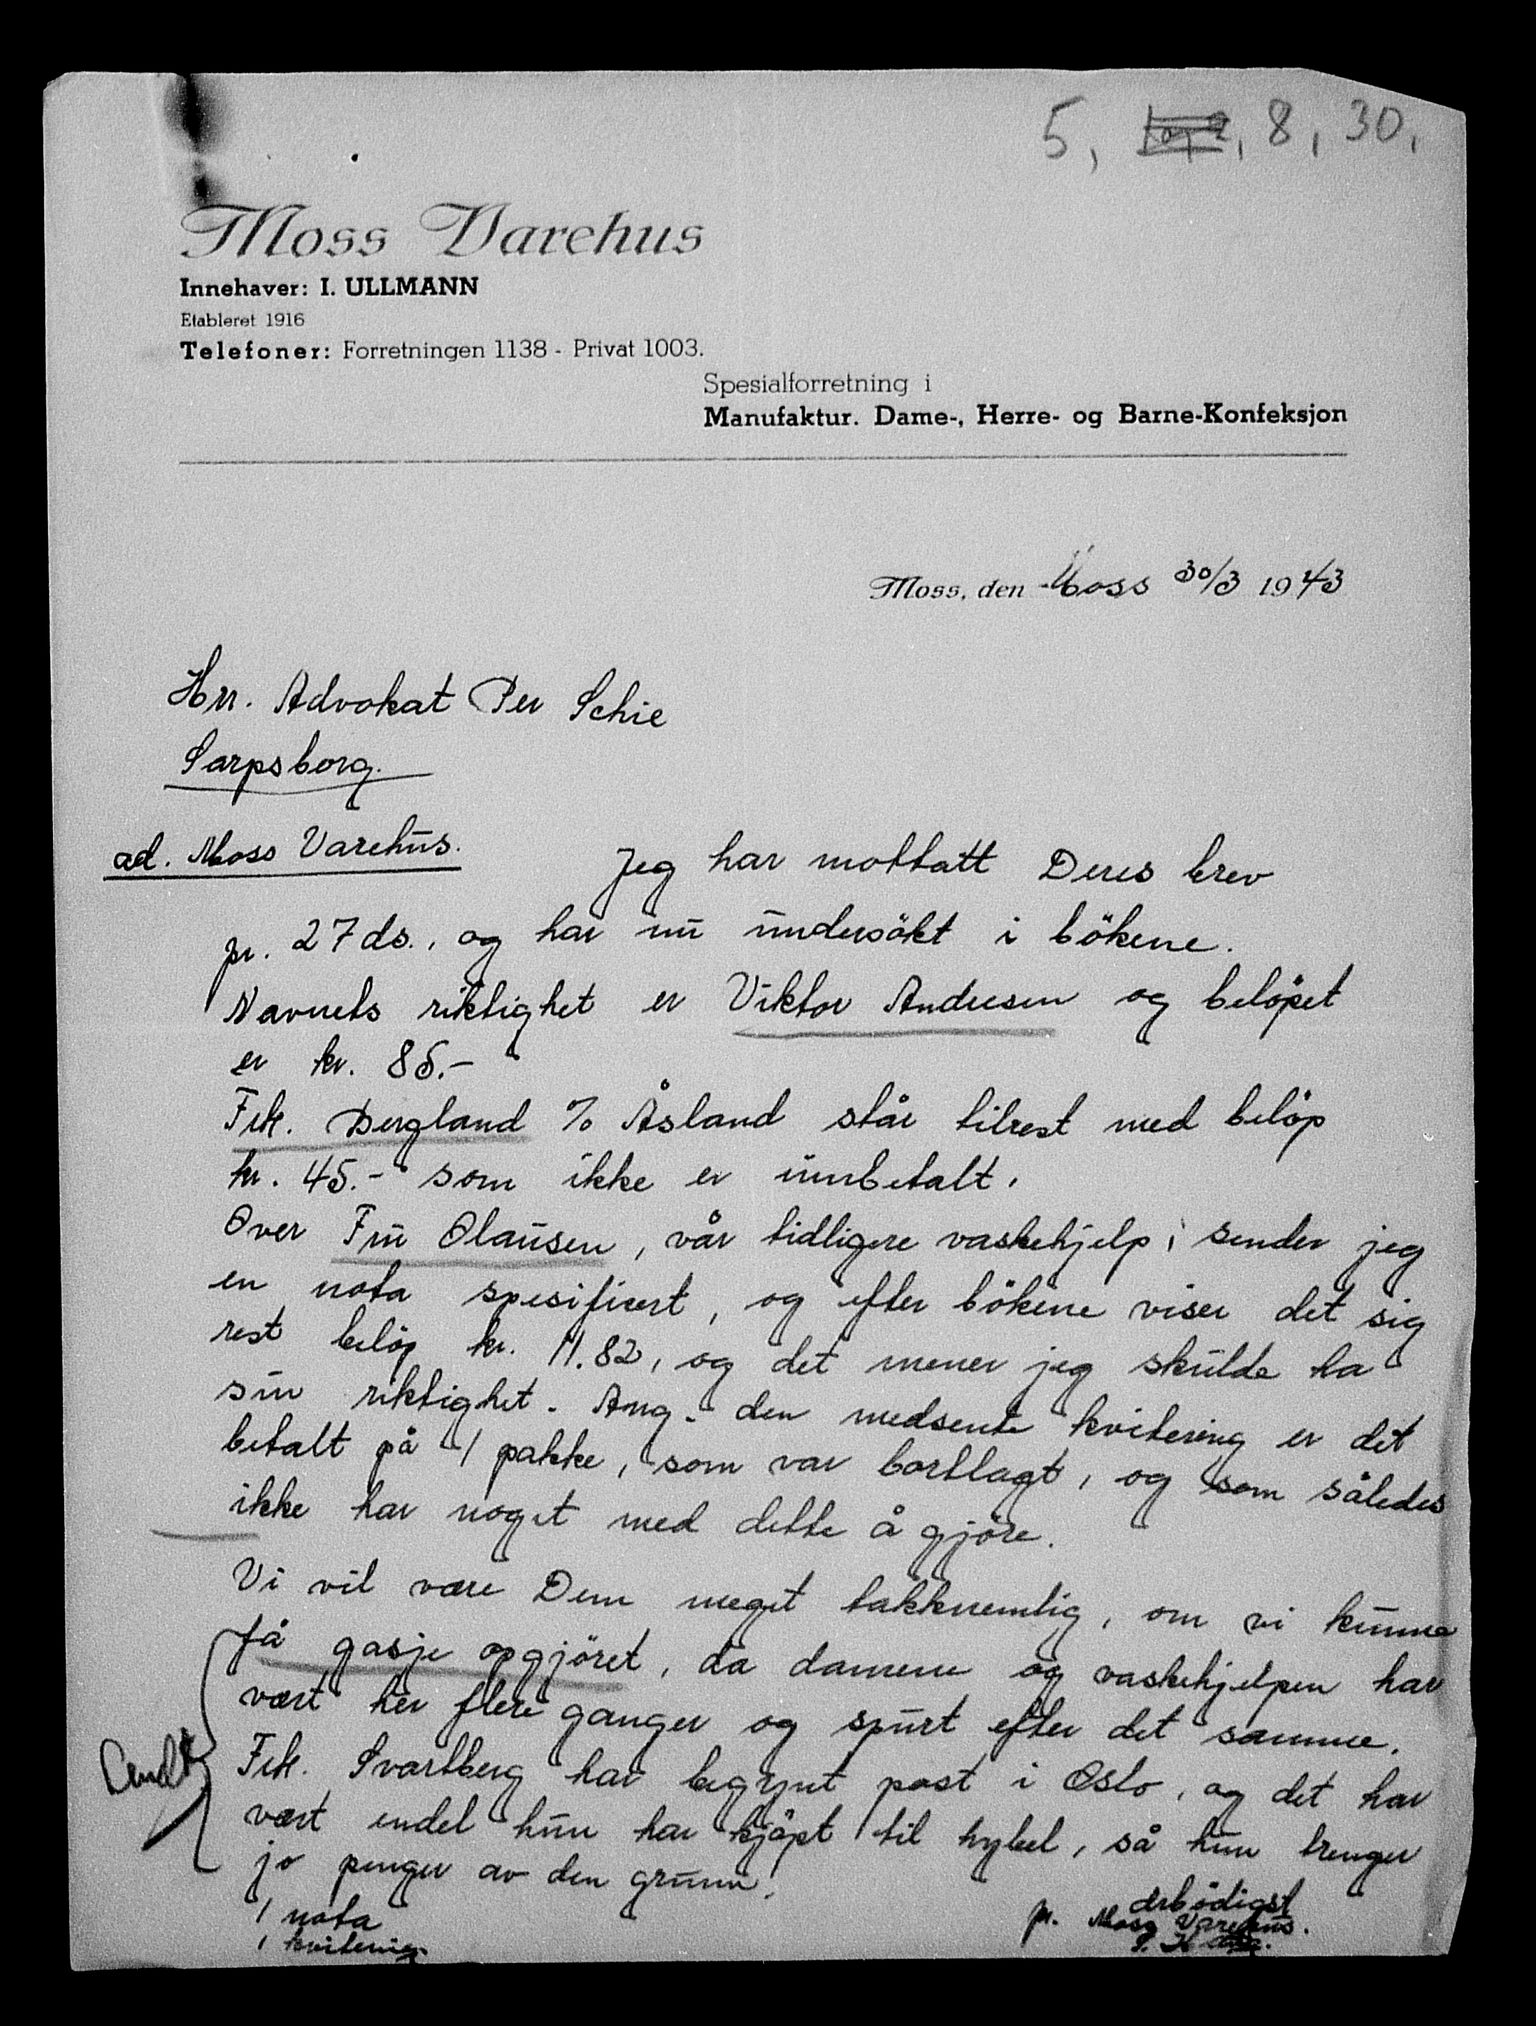 5, 8, 30,
Moss Varehus
Innehaver: I. ULLMANN
Etableret 1916
Telefoner: Forretningen 1138 - Privat 1003.
Spesialforretning i
Manufaktur. Dame-, Herre- og Barne-Konfeksjon
Moss, den Moss 30/3 1943
Hrr. Advokat Per Schie
Sarpsborg.
ad. Moss Varehus.
Jeg har mottatt Deres brev
pr. 27 ds., og har nu undersökt i bökene.
Navnets riktighet er Viktor Andresen og belöpet
er kr. 85.-
Frk. Bergland % Åsland står tilrest med belöp
kr. 45.- som ikke er innbetalt.
Over Fru Olausen, vår tidligere vaskehjelp, sender jeg
en nota spesificert, og efter bökene viser det sig
rest belöp kr. 11.82, og det mener jeg skulde ha
sin riktighet. Ang. den medsente kvitering er det
betalt på 1 pakke, som var bortlagt, og som således
ikke har noget med dette å gjöre.
Vi vil være Dem meget takknemlig, om vi kunne
få gasje opgjöret, da damene og vaskehjelpen har
vært her flere ganger og spurt efter det samme.
Sendt
Frk. Svartberg har begynt post i Oslo, og det har
vært endel hun har kjöpt til hybel, så hun trenger
jo penger av den grunn.
1 nota
1 kvitering
ærbödigst
pr. Moss Varehus.